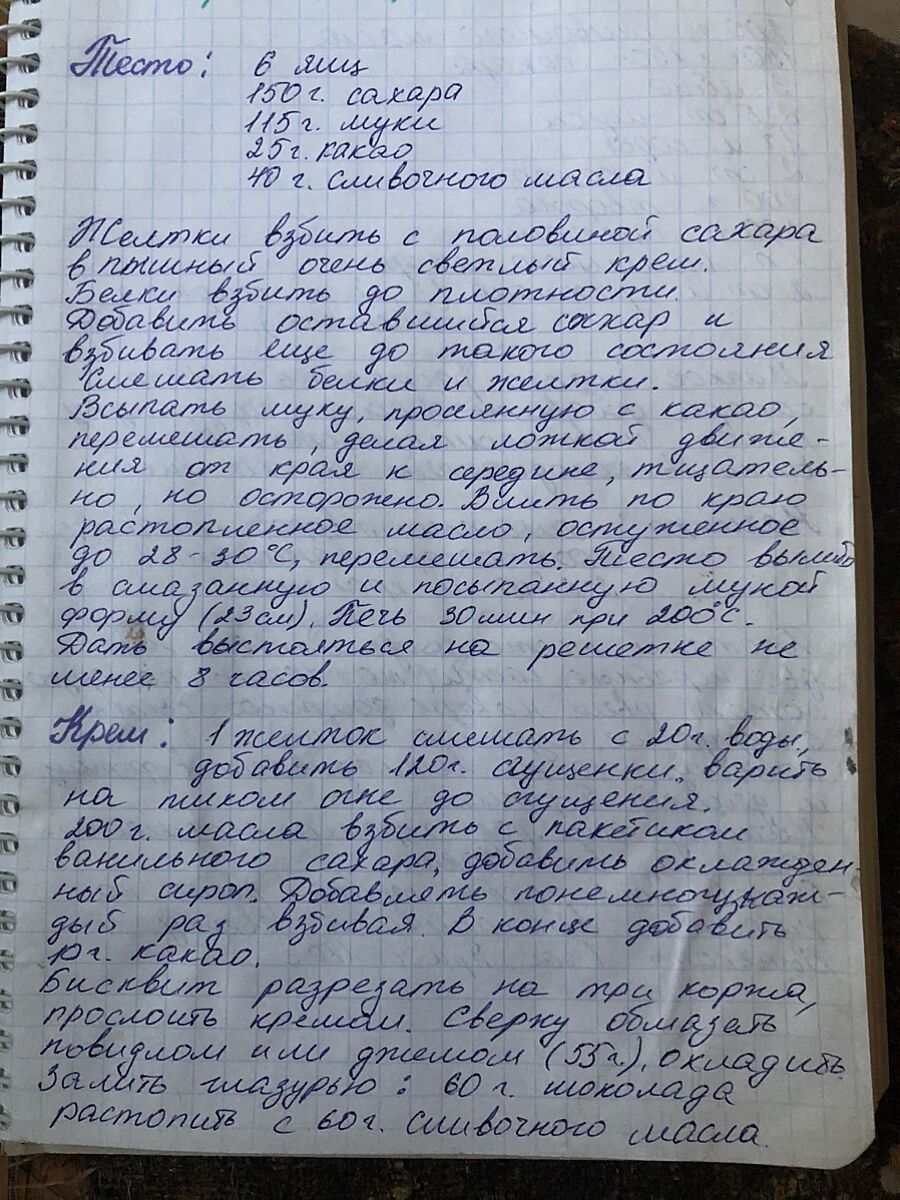 Тесто: 6 яиц
150 г. сахара
115 г. муки
25 г. какао
40 г. сливочного масла
Желтки взбить с половиной сахара
в пышный очень светлый крем.
Белки взбить до плотности.
Добавить оставшийся сахар и
взбивать еще до такого состояния
Смешать белки и желтки.
Всыпать муку, просеянную с какао,
перемешать, делая ложкой движе-
ния от края к середине, тщатель-
но, но осторожно. Влить по краю
растопленное масло, остуженное
до 28-30°С, перемешать. Тесто вылить
в смазанную и посыпанную мукой
форму (23 см). Печь 30 мин при 200°С.
Дать выстояться на решетке не
менее 8 часов.
Крем: 1 желток смешать с 20 г. воды,
добавить 120 г. сгущенки, варить
на тихом огне до сгущения.
200 г. масла взбить с пакетиком
ванильного сахара, добавить охлажден-
ный сироп. Добавлять понемногу, каж-
дый раз взбивая. В конце добавить
10 г. какао.
Бисквит разрезать на три коржа,
прослоить кремом. Сверху обмазать
повидлом или джемом (55 г.), охладить.
Залить глазурью: 60 г. шоколада
растопить с 60 г. сливочного масла.